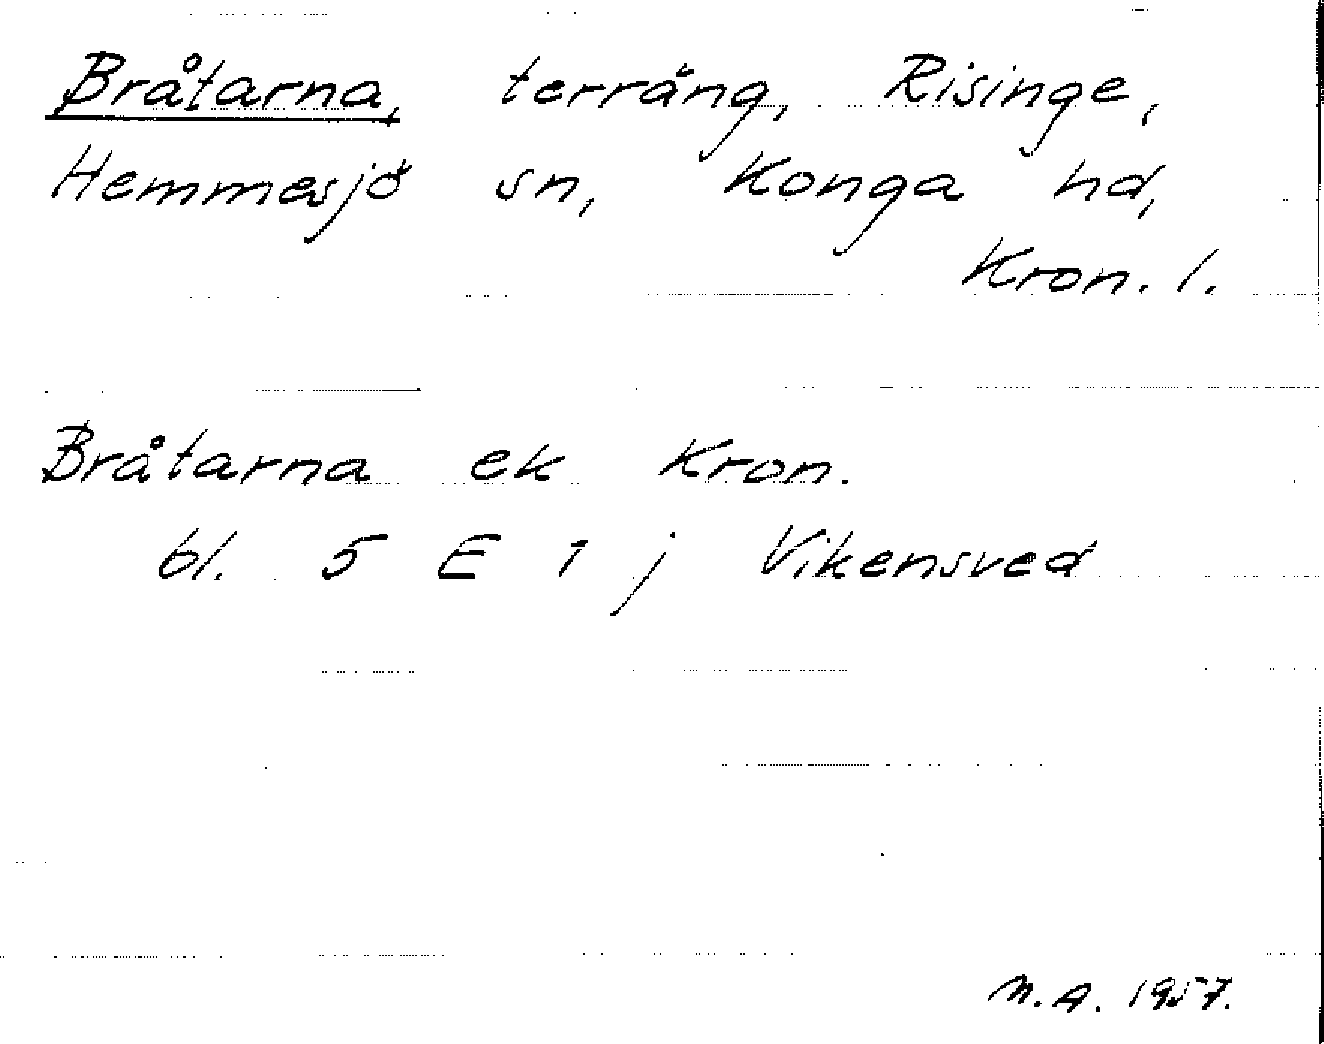 Bråtarna, terräng, Risinge,
Hemmesjö sn, Konga hd,
Kron. l.
Bråtarna ek Kron.
bl. 5 E 1 j Vikensved
N.A. 1957.